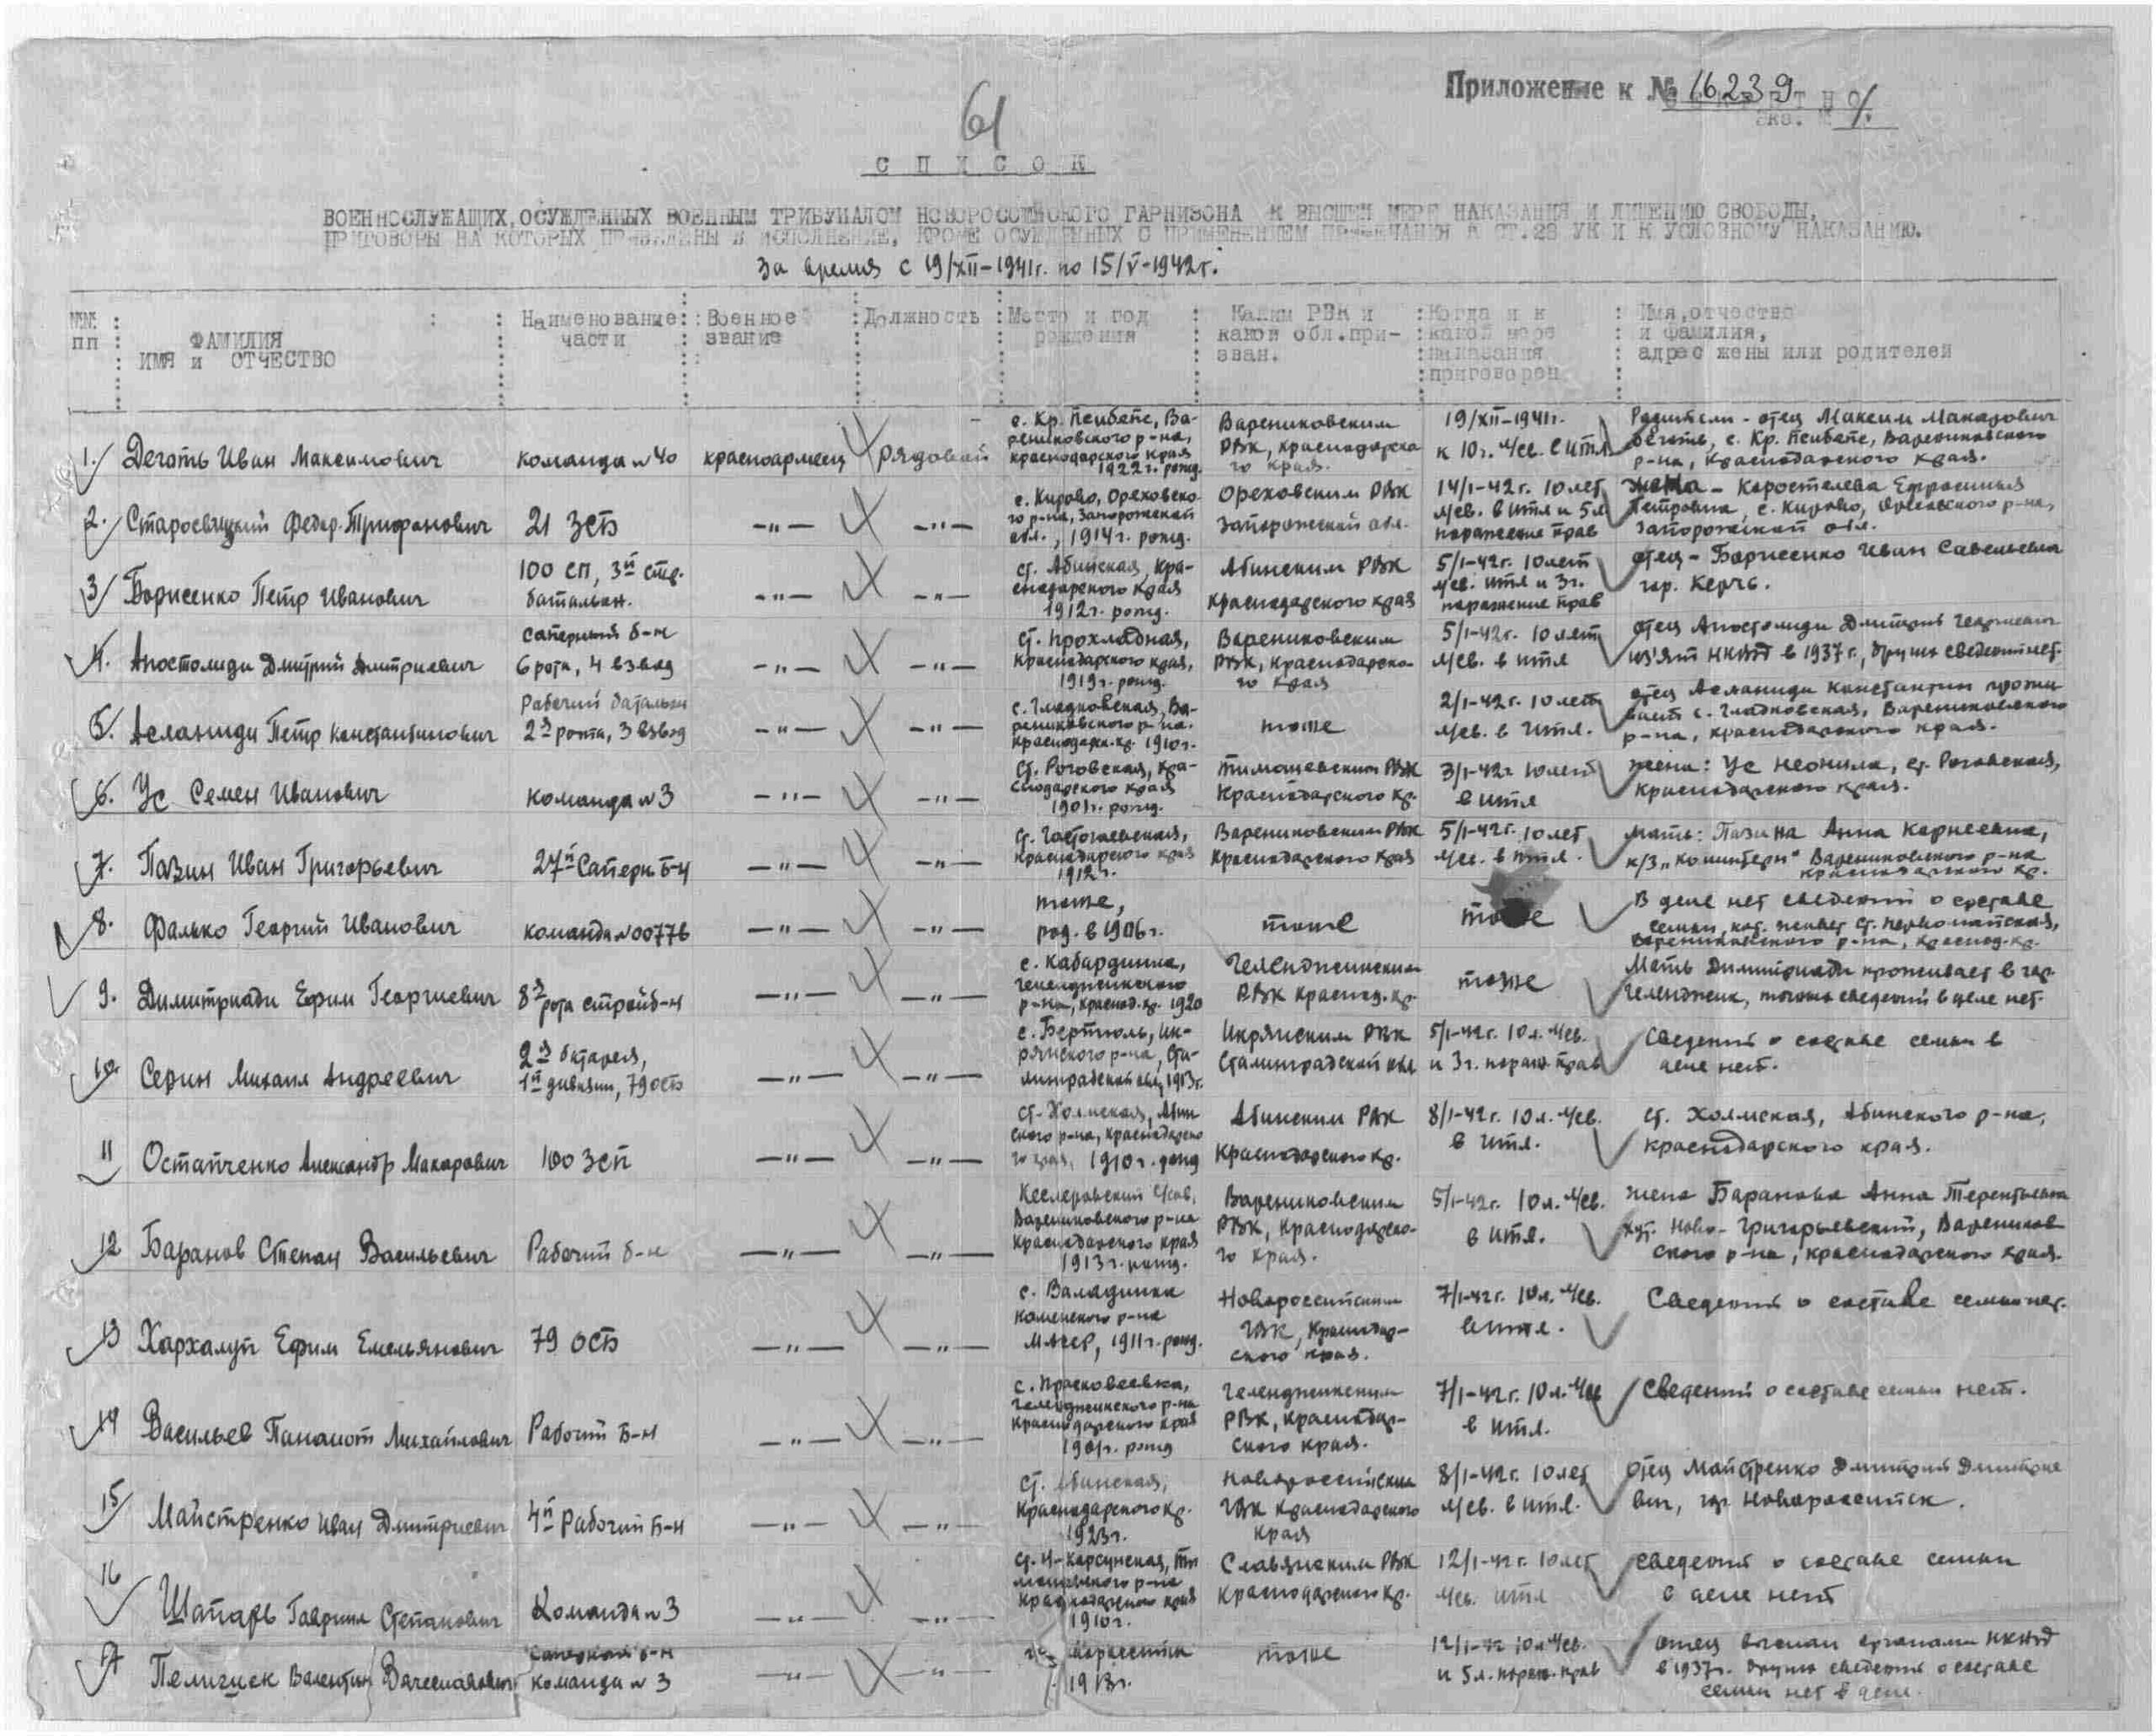 Приложение к № 16239
61
СПИСОК
ВОЕННОСЛУЖАЩИХ, ОСУЖДЕННЫХ ВОЕННЫМ ТРИБУНАЛОМ НОВОРОССИЙСКОГО ГАРНИЗОНА К ВЫСШЕЙ МЕРЕ НАКАЗАНИЯ И ЛИШЕНИЮ СВОБОДЫ,
ПРИГОВОРЫ НА КОТОРЫХ ПРИВЕДЕНЫ В ИСПОЛНЕНИЕ, КРОМЕ ОСУЖДЕННЫХ С ПРИМЕНЕНИЕМ ПРИМЕЧАНИЯ СТ.28 УК И К УСЛОВНОМУ НАКАЗАНИЮ.
За время с 19/XII-1941г. по 15/V-1942г.
№№ пп
ФАМИЛИЯ
ИМЯ и ОТЧЕСТВО
Наименование
части
Военное
звание
Должность
Место и год
рождения
Каким РВК и
какой обл.при-
зван.
Когда и к
какой мере
наказания
приговорен
Имя,отчество
и фамилия,
адрес жены или родителей
1. Деготь Иван Максимович
команда №40
красноармеец
рядовой
с. Кр. Псибепс, Ва-
рениковского р-на,
Краснодарского края
1922г. рожд.
Варениковским
РВК, Краснодарско
го края.
19/XII-1941г.
к 10г. л/св. в ИТЛ
Родители - отец Максим Макарович
Деготь, с. Кр. Псибепс, Варениковского
р-на, Краснодарского края.
2. Федор Трифонович
21 ЗСБ
-"-
-"-
с. Кирово, Ореховско
го р-на, Запорожской
обл., 1914г. рожд.
Ореховским РВК
Запорожской обл.
14/I-42г. 10 лет
л/св. в ИТЛ и 5л
поражение прав
жена - Коростелева Ефросинья
Петровна, с. Кирово, Ореховского р-на,
Запорожской обл.
3/ Борисенко Петр Иванович
100 СП, 3й стр.
батальон.
-"-
-"-
ст. Абинская, Кра-
снодарского края
1912г. рожд.
Абинским РВК
Краснодарского края
5/I-42г. 10 лет
л/св. ИТЛ и 3г.
поражение прав
отец - Борисенко Иван Савельевич
гор. Керчь.
4. Апостолиди Дмитрий Дмитриевич
саперный б-н
6 рота, 4 взвод
-"-
-"-
ст. Прохладная,
Краснодарского края,
1919г. рожд.
Варениковским
РВК, Краснодарско-
го края
5/I-42г. 10 лет
л/св. в ИТЛ
отец Апостолиди Дмитрий Георгиевич
из'ят НКВД в 1937г., других сведений нет.
5. Асланиди Петр Константинович
Рабочий батальон
2я рота, 3 взвод
-"-
-"-
с. Гладковская, Ва-
рениковского р-на,
Краснодарск. кр. 1910г.
тоже
2/I-42г. 10 лет
л/св. в ИТЛ.
отец Асланиди Константин прожи
вает с. Гладковская, Варениковского
р-на, Краснодарского края.
6. Ус Семен Иванович
команда №3
-"-
-"-
ст. Роговская, Кра-
снодарского края
1901г. рожд.
Тимашевским РВК
Краснодарского кр.
3/I-42г 10 лет
в ИТЛ
жена: Ус Неонила, ст. Роговская,
Краснодарского края.
7. Пазин Иван Григорьевич
27й Саперн. Б-н
-"-
-"-
ст. Гостогаевская,
Краснодарского края
1912г.
Варениковским РВК
Краснодарского края
5/I-42г. 10 лет
л/св. в ИТЛ.
мать: Пазина Анна Корнеевна,
к/з "Коминтерн" Варениковского р-на
Краснодарского кр.
8. Фалько Георгий Иванович
команда №00776
-"-
-"-
тоже,
род. в 1906г.
тоже
тоже
В деле нет сведений о составе
семьи, кот. живет ст. Первомайская,
Варениковского р-на, Краснод. кр.
9. Димитриади Ефим Георгиевич
8я рота стройб-н
-"-
-"-
с. Кабардинка,
Геленджикского
р-на, Краснод. кр. 1920
Геленджикским
РВК Краснод. кр.
тоже
Мать Димитриади проживает в гор
Геленджик, точных сведений в деле нет.
10. Серин Михаил Андреевич
2я батарея,
1й дивизии, 79 ОСБ
-"-
-"-
с. Бертюль, Ик-
рянского р-на, Ста-
линградской обл, 1913г.
Икрянским РВК
Сталинградской обл
5/I-42г. 10 л. л/св.
и 3г. пораж. прав
Сведений о составе семьи в
деле нет.
11 Остапченко Александр Макарович
100 ЗСП
-"-
-"-
ст. Холмская, Абин
ского р-на, Краснодарско
го края, 1910г. рожд
Абинским РВК
Краснодарского кр.
8/I-42г. 10 л. л/св.
в ИТЛ.
ст. Холмская, Абинского р-на,
Краснодарского края.
12 Баранов Степан Васильевич
Рабочий б-н
-"-
-"-
Кеслеровский с/сов,
Варениковского р-на
Краснодарского края
1913г. рожд.
Варениковским
РВК, Краснодарско-
го края.
5/I-42г. 10 л. л/св.
в ИТЛ.
жена Баранова Анна Терентьевна
хут. Ново-Григорьевский, Вареников
ского р-на, Краснодарского края.
13 Хархалуп Ефим Емельянович
79 ОСБ
-"-
-"-
с. Валадинка
Каменского р-на
МАССР, 1911г. рожд.
Новороссийским
ГВК, Краснодар-
ского края.
7/I-42г. 10 л. л/св.
в ИТЛ.
Сведений о составе семьи нет.
14 Васильев Панаиот Михайлович
Рабочий Б-н
-"-
-"-
с. Прасковеевка,
Геленджикского р-на
Краснодарского края
1901г. рожд
Геленджикским
РВК, Краснодар-
ского края.
7/I-42г. 10 л. л/св
в ИТЛ.
Сведений о составе семьи нет.
15 Майстренко Иван Дмитриевич
4й рабочий Б-н
-"-
-"-
ст. Абинская,
Краснодарского кр.
1923г.
Новороссийским
ГВК Краснодарского
края
8/I-42г. 10 лет
л/св. в ИТЛ.
отец Майстренко Дмитрий Дмитрие
вич, гор. Новороссийск.
16 Шапарь Гавриил Степанович
Команда №3
-"-
-"-
ст. Н-Корсунская,
р-на
Краснодарского края
1910г.
Славянским РВК
Краснодарского кр.
12/I-42г. 10 лет
л/св. ИТЛ
сведений о составе семьи
в деле нет
17 Валентин Вячеславович
Саперный б-н
команда №3
-"-
-"-
1913г.
тоже
12/I-42 10 л. л/св.
и 5 л. пораж. прав
отец выслан органами НКВД
в 1937г. других сведений о составе
семьи нет в деле.